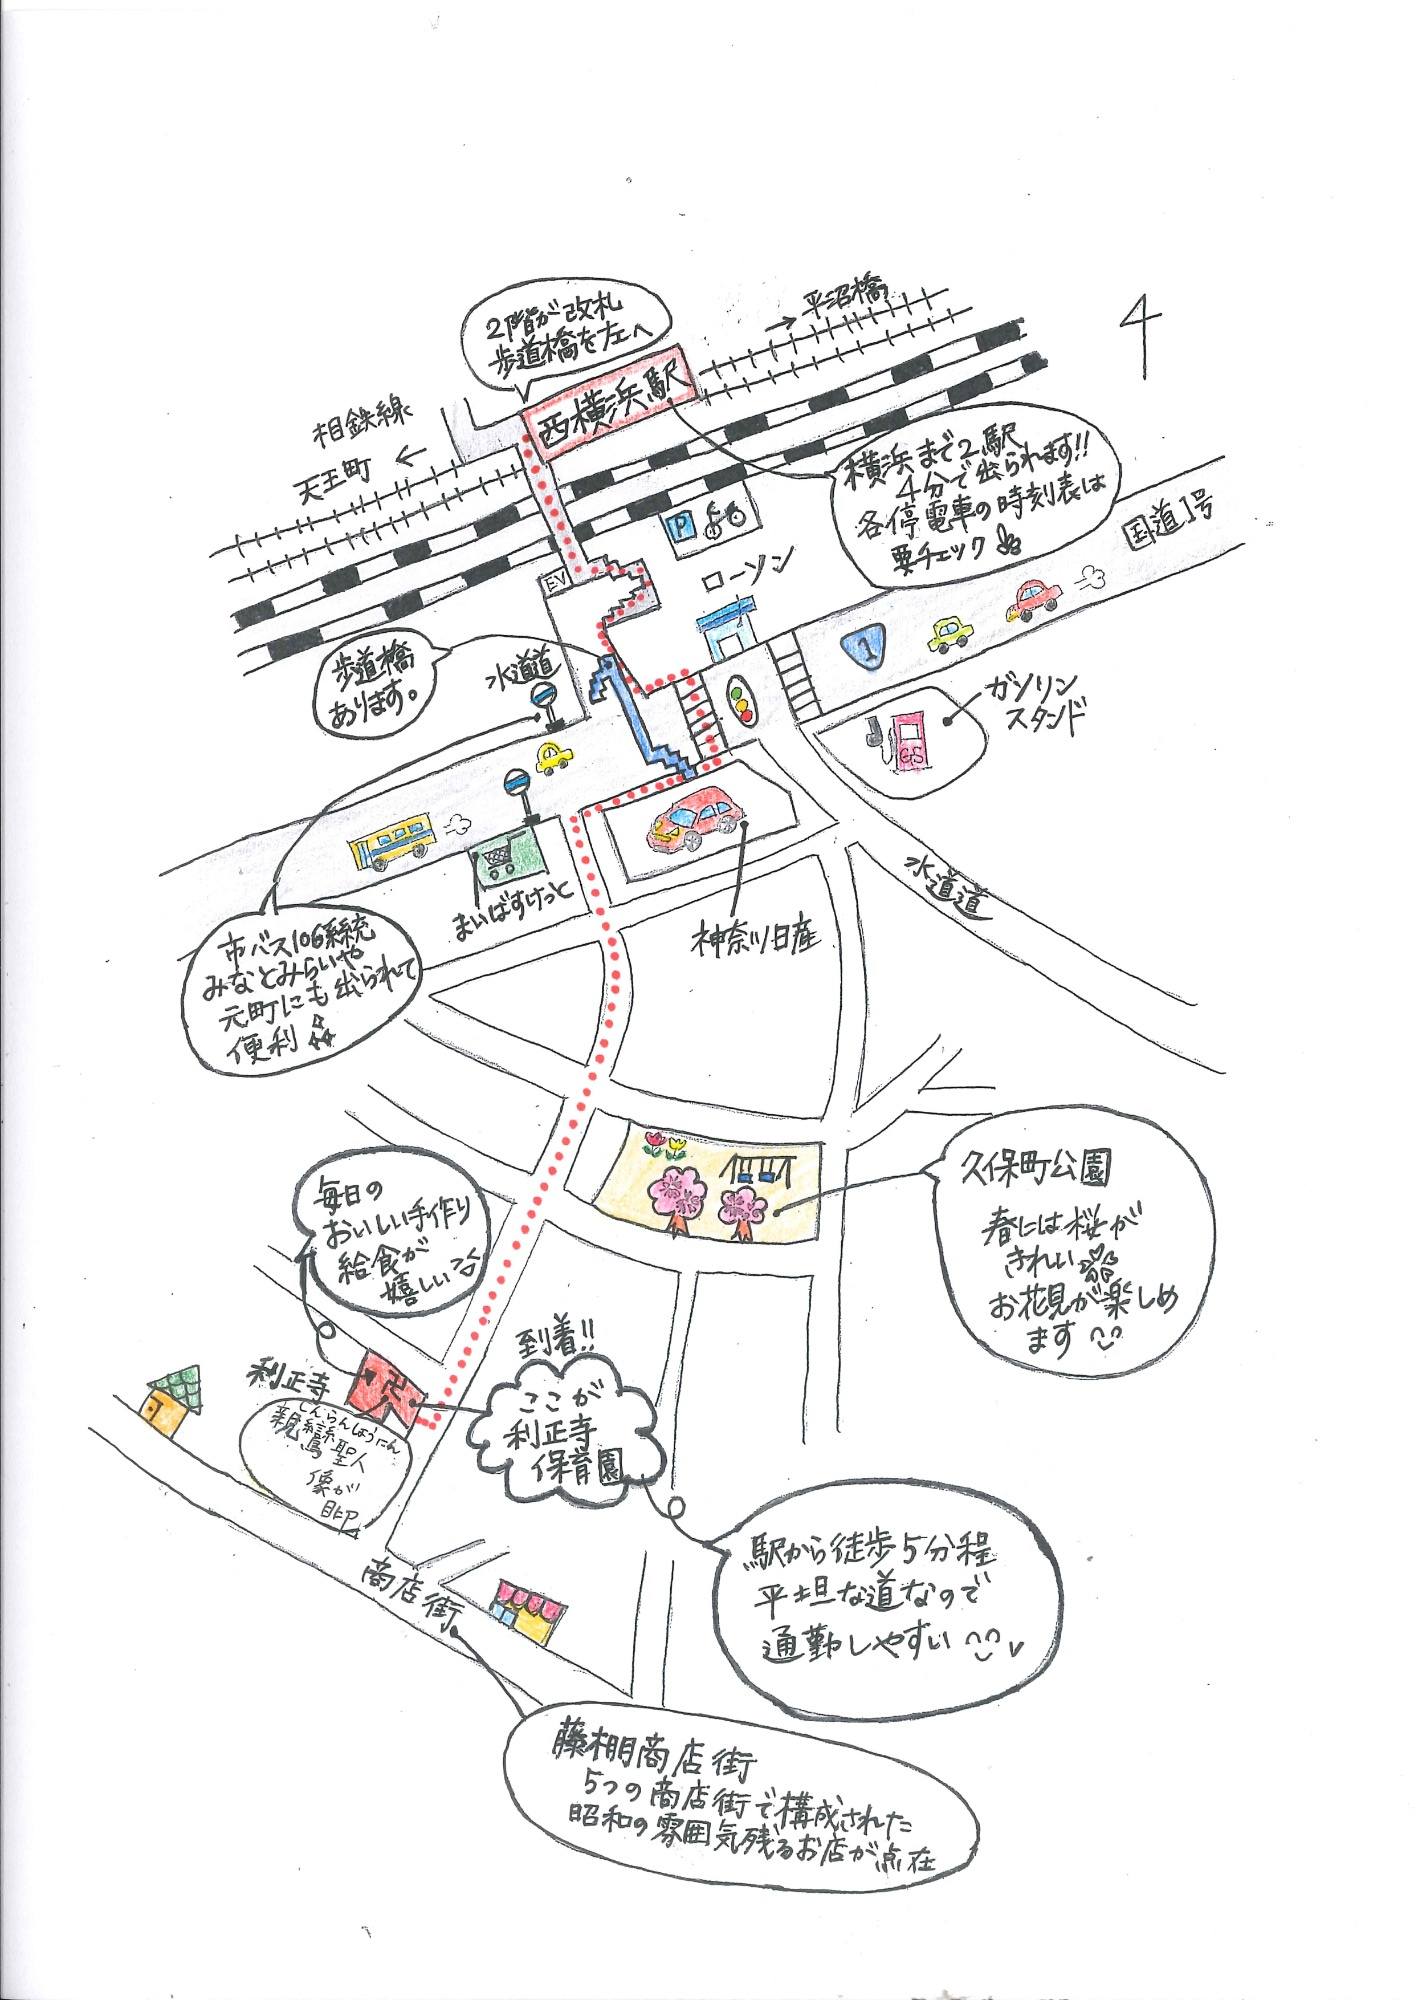 2階が改札
歩道橋を左へ
→平沼橋
西横浜駅
相鉄線
天王町 ←
横浜まで2駅
4分で出られます!!
各停電車の時刻表は
要チェック
国道1号
P
EV
ローソン
1
歩道橋
あります。
水道道
ガソリン
スタンド
GS
水道道
まいばすけっと
神奈川日産
市バス106系統
みなとみらいや
元町にも出られて
便利
久保町公園
春には桜が
きれい
お花見が楽しめ
ます
毎日の
おいしい手作り
給食が
嬉しい
到着!!
ここが
利正寺
保育園
利正寺
しんらんしょうにん
親鸞聖人
像が
目印
駅から徒歩5分程
平坦な道なので
通勤しやすい
商店街
藤棚商店街
5つの商店街で構成された
昭和の雰囲気残るお店が点在